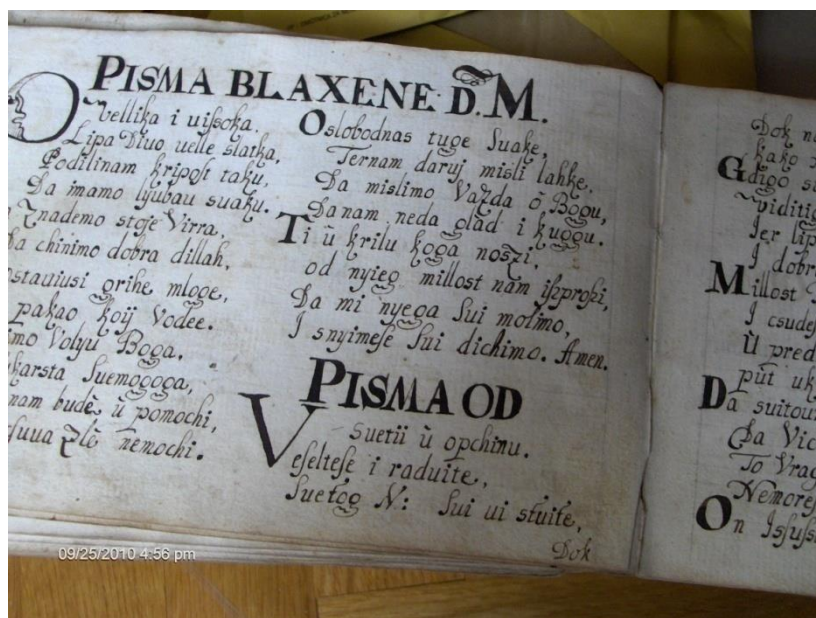 PISMA BLAXENE D. M.
O vellika i uiſsoka.
Lipa Divo uelle slatka,
Podilinam kripoſt taku,
Da imamo lyubau suaku.
Znademo stoje Virra,
Da chinimo dobra dillah,
ostauiusi grihe mloge,
pakao koij Vodee.
imo Volyu Boga.
karsta Suemogoga,
nam budē ù pomochi,
ſuua zlō nemochi.
Oslobodnas tuge Suake,
Ternam daruj misli lahke,
Da mislimo Vazda ō Bogu,
Da nam neda glad i kuggu.
Ti ù krilu koga noszi,
od nyieg millost nam iſzproſzi,
Da mi nyega Sui molimo,
I snyimeſe Sui dichimo. Amen.
PISMA OD
Suetii ù opchinu.
Veſelteſe i raduite,
Suetog N: Sui ui stuite,
Dok
Dok
kako
Gdigo
viditi
Jer lip
I dobr
Millost
I csude
Ù pred
pùt uk
Da suitou
Da Vic
To Vrag
Nemoreſ
On Iſsuſ
09/25/2010 4:56 pm